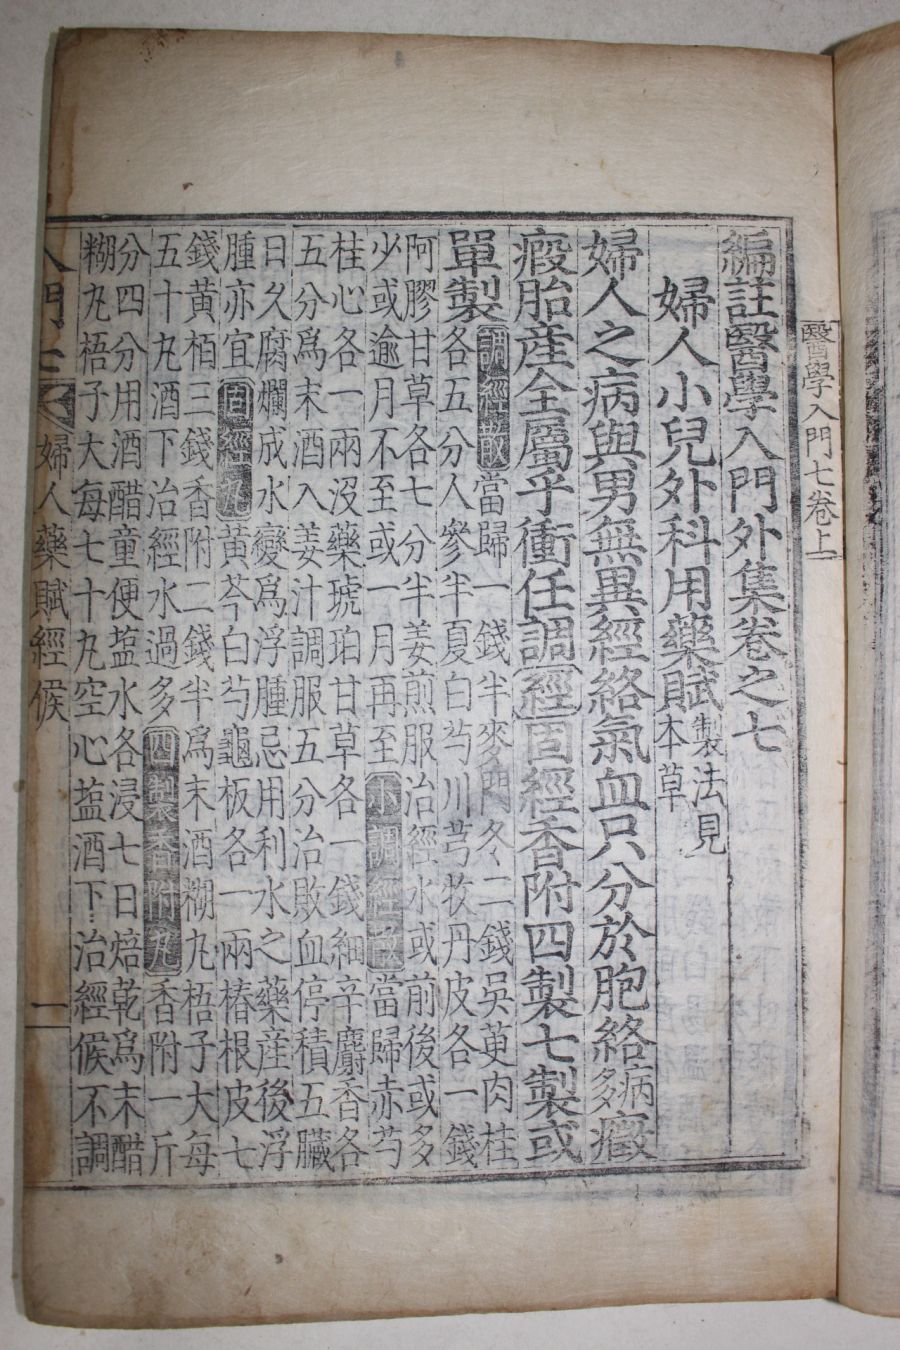 醫學入門七卷上
編註醫學入門外集卷之七
婦人小兒外科用藥賦製法見
本草
婦人之病與男無異經絡氣血只分於胞絡病多癥
瘕胎產全屬乎衝任調經固經香附四製七製或
單製調經散當歸一錢半麥門冬二錢吳茰肉桂
各五分人參半夏白芍川芎牧丹皮各一錢
阿膠甘草各七分半姜煎服治經水或前後或多
少或逾月不至或一月再至不調經散當歸赤芍
桂心各一兩沒藥琥珀甘草各一錢細辛麝香各
五分爲末酒入姜汁調服五分治敗血停積五臟
日久腐爛成水變爲浮腫忌用利水之藥產後浮
腫亦宜固經丸黃芩白芍龜板各一兩椿根皮七
錢黃栢三錢香附二錢半爲末酒糊丸梧子大每
五十丸酒下治經水過多四製香附丸香附一斤
分四分用酒醋童便盐水各浸七日焙乾爲末醋
糊丸梧子大每七十丸空心盐酒下治經候不調
入門七 婦人藥賦經候 一